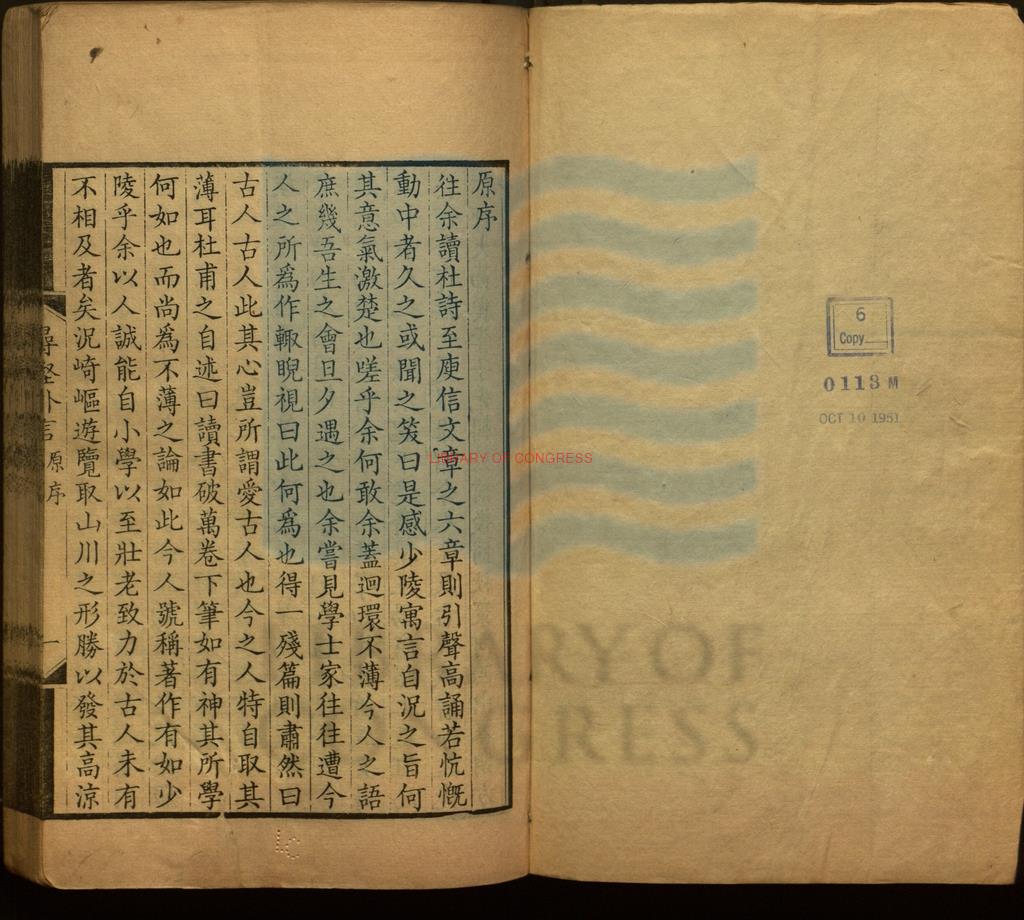 原序
往余讀杜詩至庾信文章之六章則引聲高誦若忼慨
動中者久之或聞之笑曰是感少陵寓言自況之旨何
其意氣激楚也嗟乎余何敢余蓋迴環不薄今人之語
庶幾吾生之會旦夕遇之也余嘗見學士家往往遭今
人之所為作輒睨視曰此何為也得一殘篇則肅然曰
古人古人此其心豈所謂愛古人也今之人特自取其
薄耳杜甫之自述曰讀書破萬卷下筆如有神其所學
何如也而尚為不薄之論如此今人號稱著作有如少
陵乎余以人誠能自小學以至壯老致力於古人未有
不相及者矣況崎嶇遊覽取山川之形勝以發其高涼
尋壑外言
原序
一
6
Copy
0113 M
OCT 10 1951
LIBRARY OF CONGRESS
LC